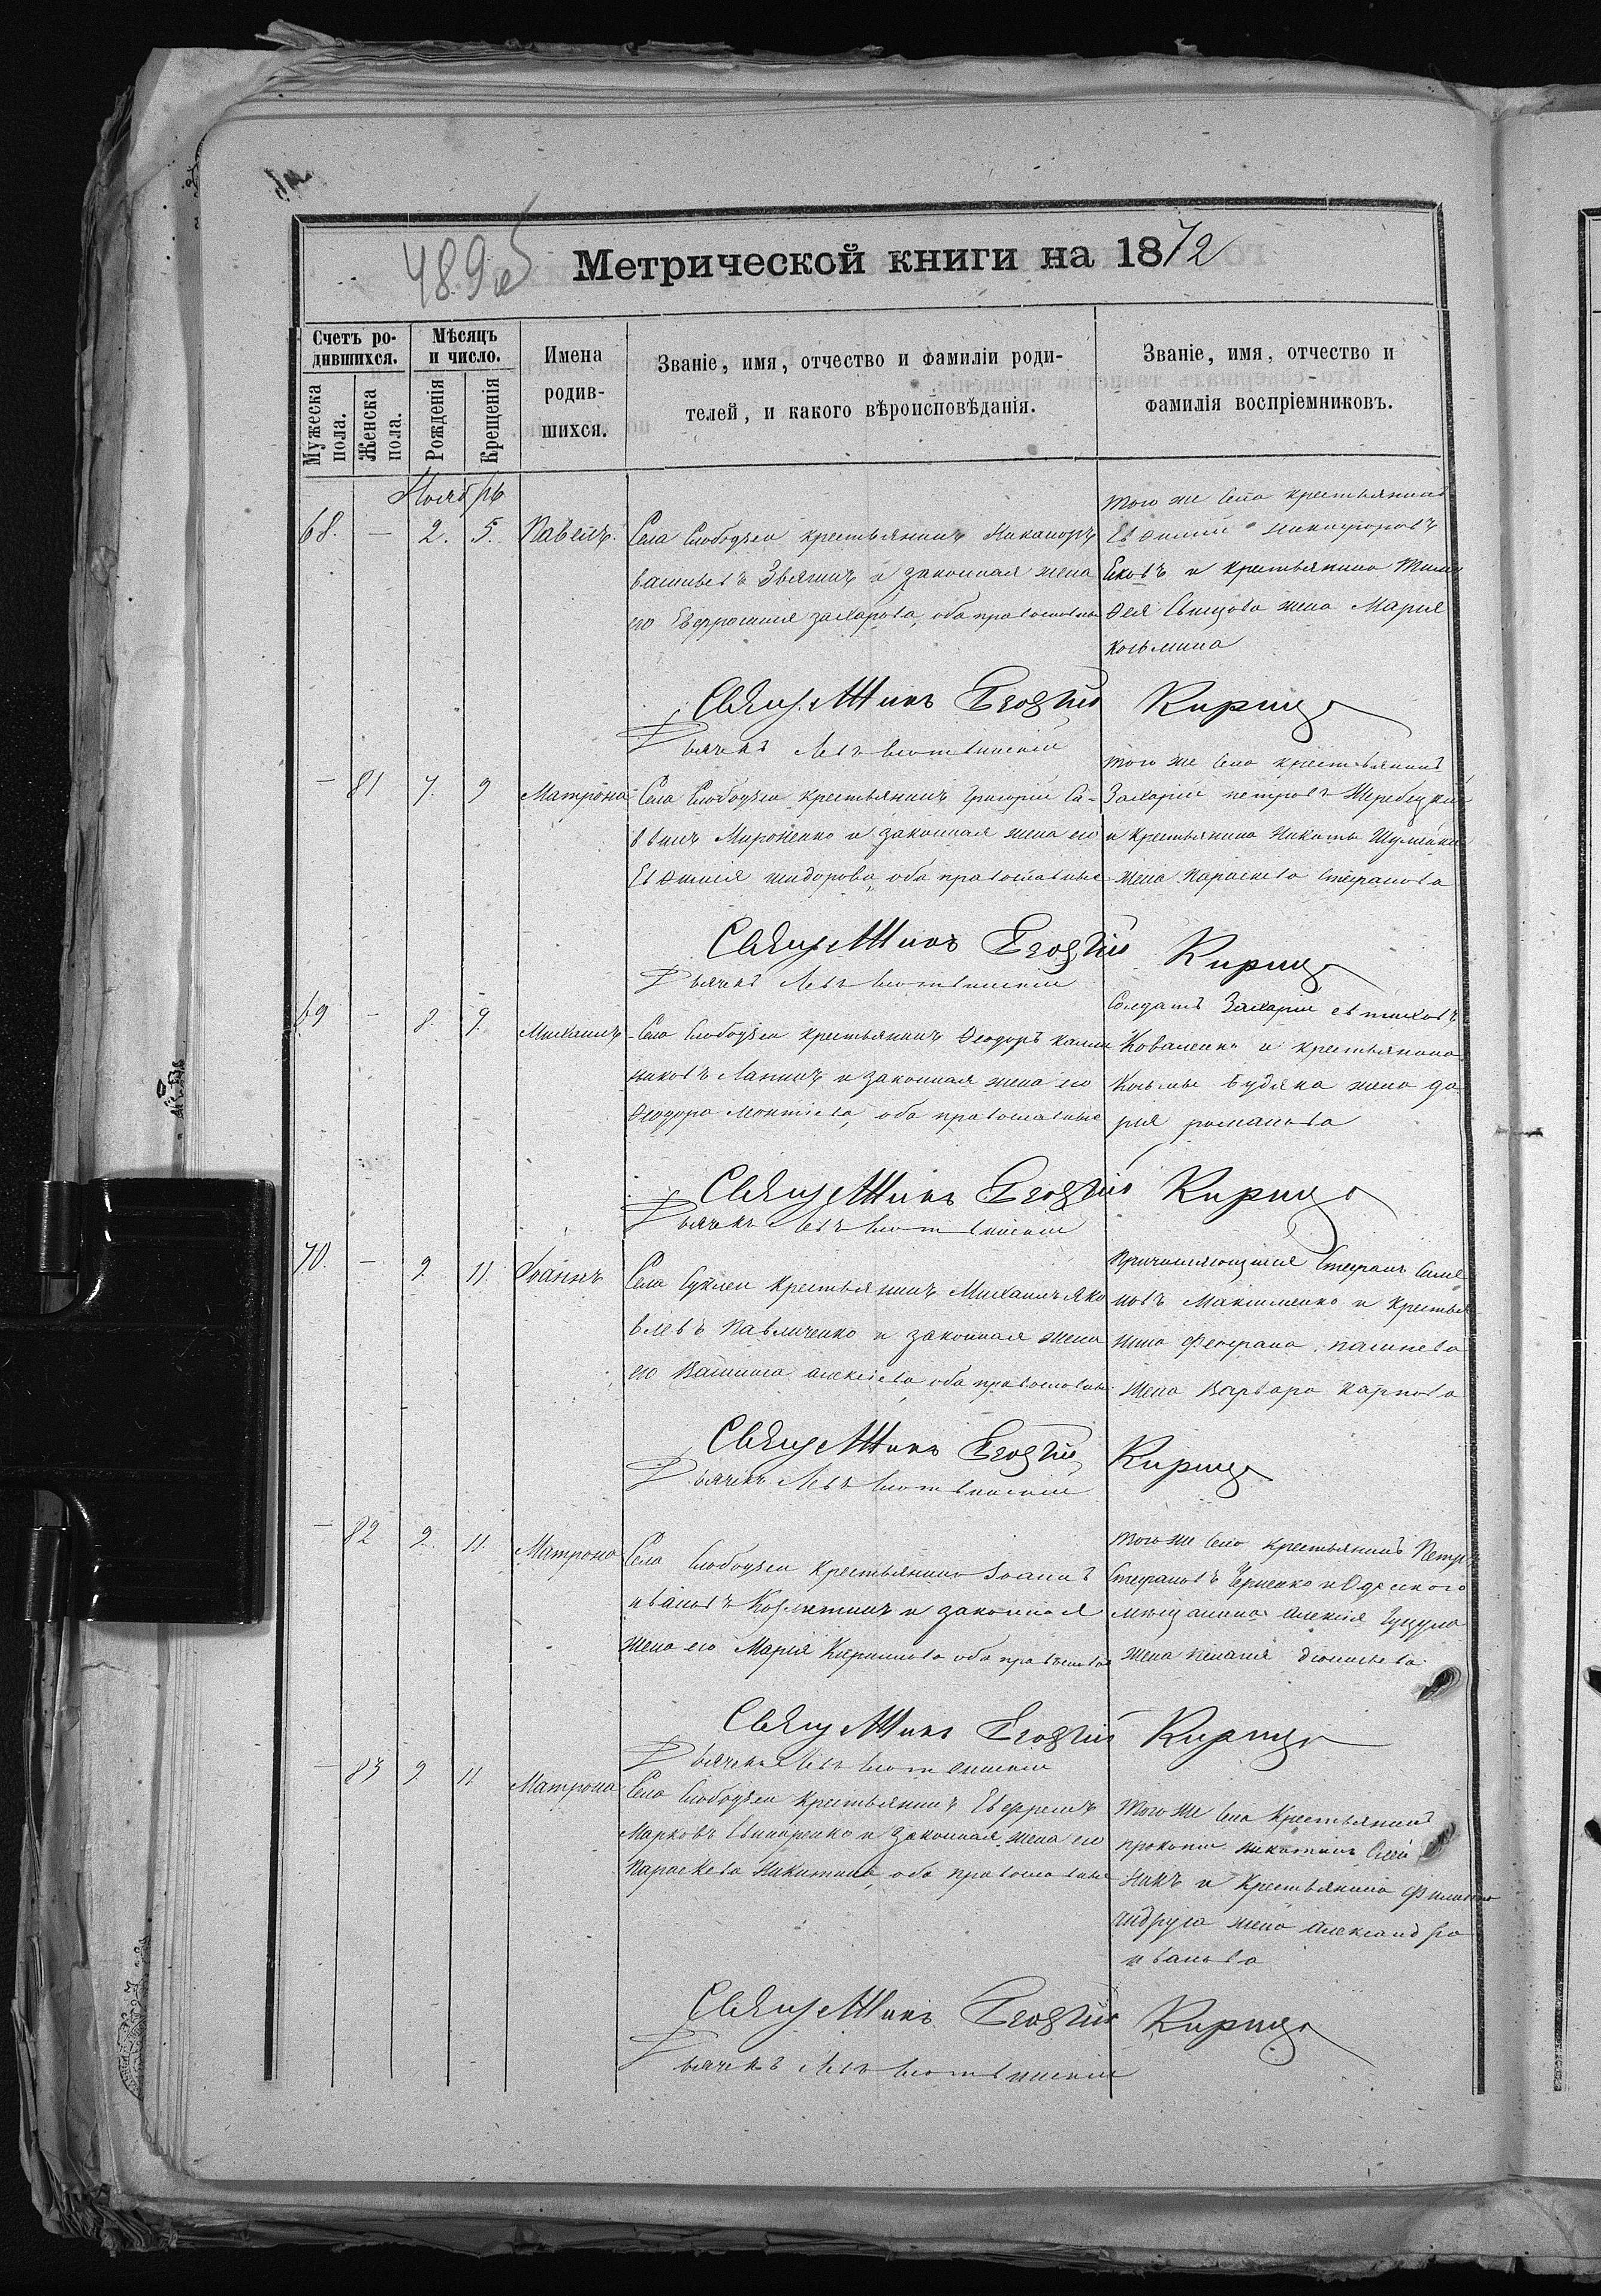 489об
Метрической книги на 1872
Счетъ ро-
дившихся.
Мѣсяцъ
и число.
Мужеска
пола.
Женска
пола.
Рожденія
Крещенія
Имена
родив-
шихся.
Званіе, имя, отчество и фамиліи роди-
телей, и какого вѣроисповѣданія.
Званіе, имя, отчество и
фамилія воспріемниковъ.
Ноябрь
68. — 2. 5. Павелъ.
Села Слободзеи крестьянинъ Никаноръ
Звягинъ и законная жена
его Евфросинія Захарова, оба православные
того же села крестьянинъ
Евфимій Никифоровъ
и крестьянина Тимо
фея жена Марія
Козьмина
Священникъ Георгій Кирица
Дьячекъ Левъ
— 81 7. 9 Матрона
Села Слободзеи крестьянинъ Григорій Са-
ввинъ Мироненко и законная жена его
Евфимія Исидорова, оба православные
того же села крестьянинъ
Захарій Петровъ Жеребецкій
и крестьянина Никиты
жена Параскева Стефанова
Священникъ Георгій Кирица
Дьячекъ Левъ
69 — 8. 9. Михаилъ
Села Слободзеи крестьянинъ Феодоръ Калин
никовъ и законная жена его
Феодора оба православные
Солдатъ Захарій
Коваленко и крестьянина
Козьмы Будяка жена Да
рія Романова
Священникъ Георгій Кирица
Дьячекъ Левъ
70. — 9. 11. Іоаннъ
Села Суклеи крестьянинъ Михаилъ Яко
влевъ Павличенко и законная жена
его Алексіева, оба православные
Стефанъ Симе
новъ Максименко и крестья
нина
жена Варвара Карпова
Священникъ Георгій Кирица
Дьячекъ Левъ
— 82 9. 11. Матрона
Села Слободзеи крестьянинъ Іоаннъ
Ивановъ и законная
жена его Марія Кириллова оба православные
того же села крестьянинъ Петръ
Стефановъ Черненко и Одесского
мѣщанина Алексія Гуцула
жена Пелагія Діонисьева
Священникъ Георгій Кирица
Дьячекъ Левъ
— 83 9. 11 Матрона
Села Слободзеи крестьянинъ Евфремъ
Марковъ и законная жена его
Параскева Никитина, оба православные
того же села крестьянинъ
Прокопій Никитинъ
и крестьянина
жена Александра
Иванова
Священникъ Георгій Кирица
Дьячекъ Левъ